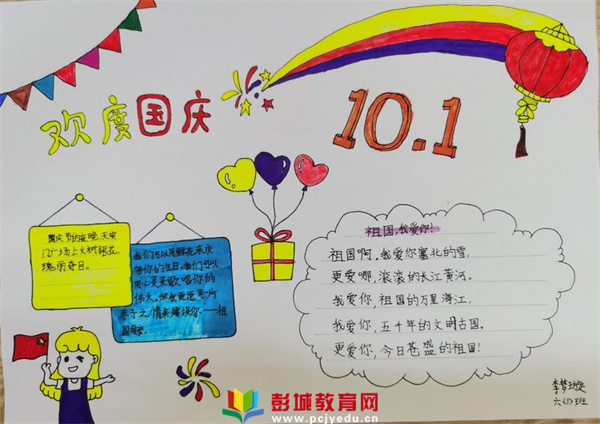 欢度国庆
10.1
国庆节的夜晚,天安
门广场上火树银花
瑰丽奇目。
我们可以用鲜花来庆
你的生日。我们可以
同心来歌唱你的
伟大。
赤子之情来建设你——祖
国
祖国,我爱你!
祖国啊,我爱你塞北的雪,
更爱哪,滚滚的长江黄河。
我爱你,祖国的万里海江,
我爱你,五千年的文明古国。
更爱你,今日苍盛的祖国!
李梦璇
六(1)班
彭城教育网
www.pcjyedu.cn